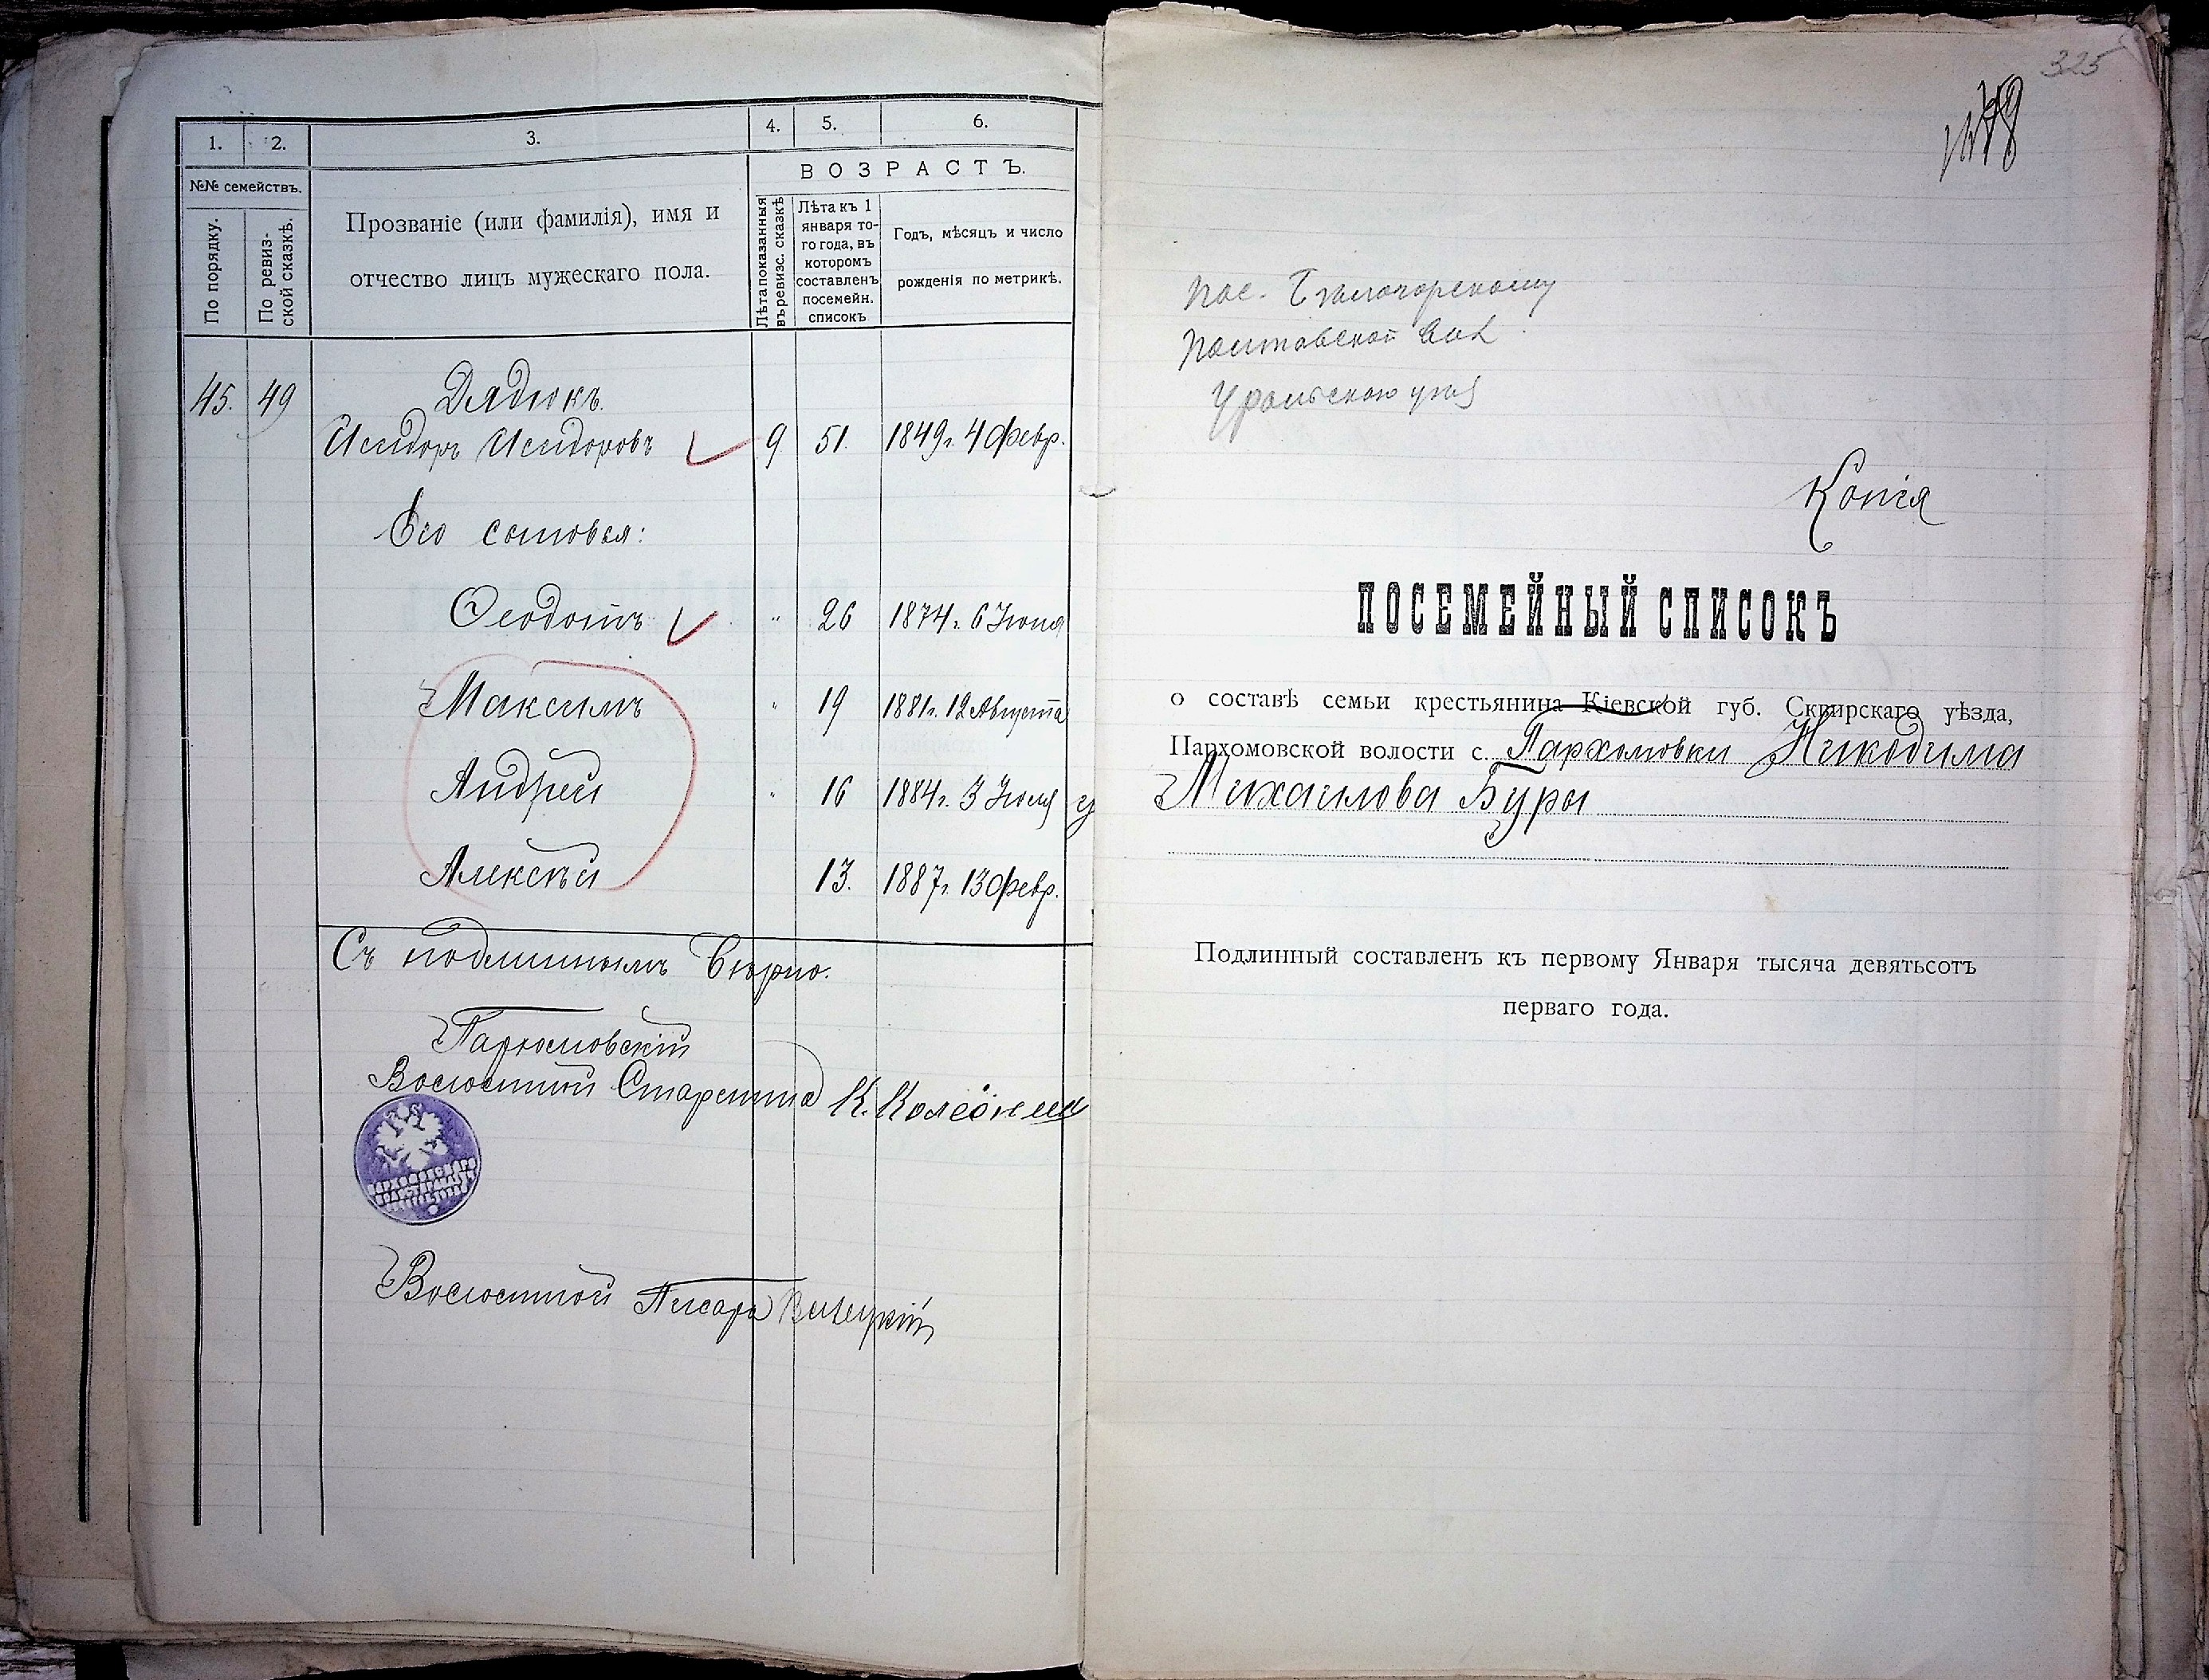 1.
2.
3.
4.
5.
6.
№№ семействъ.
По порядку.
По ревиз-
ской сказкѣ.
Прозваніе (или фамилія), имя и
отчество лицъ мужескаго пола.
ВОЗРАСТЪ.
Лѣта показанныя
въ ревизс. сказкѣ
Лѣта къ 1
января то-
го года, въ
которомъ
составленъ
посемейн.
списокъ
Годъ, мѣсяцъ и число
рожденія по метрикѣ.
45. 49 Дядюкъ.
Исидоръ Исидоровъ 9 51. 1849 г. 4 Февр.
Его сыновья:
Ѳеодотъ " 26 1874 г. 6 Іюня
Максимъ " 19 1881 г. 12 Августа
Андрей " 16 1884 г. 3 Іюля
Алексѣй 13. 1887 г. 13 Февр.
Съ подлиннымъ вѣрно.
Пархомовскій
Волостной Старшина К.
Волостной Писарь
325
Уральскаго
Копія
ПОСЕМЕЙНЫЙ СПИСОКЪ
о составѣ семьи крестьянина Кіевской губ. Сквирскаго уѣзда,
Пархомовской волости с. Пархомовки Никодима
Михаилова Буры
Подлинный составленъ къ первому Января тысяча девятьсотъ
перваго года.